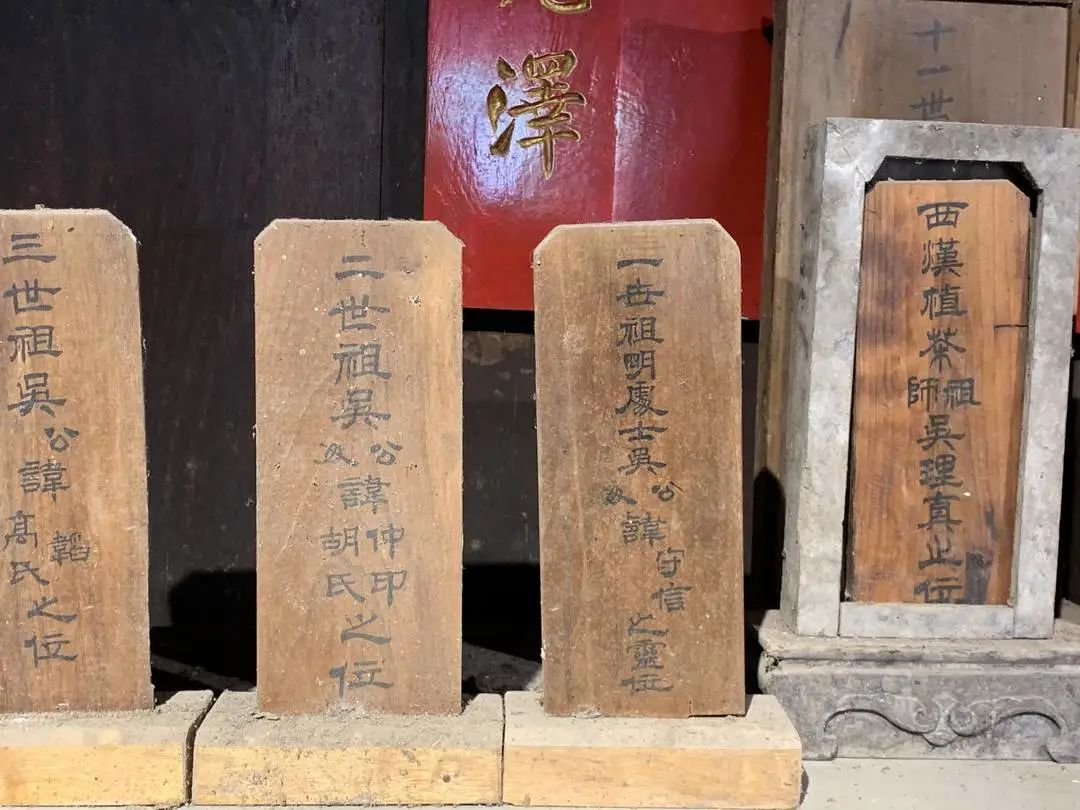 十一世
西漢植茶祖師吳理真止位
澤
一世祖明處士吳公及諱守信之靈位
二世祖吳公及諱仲印胡氏之位
三世祖吳公諱韜高氏之位